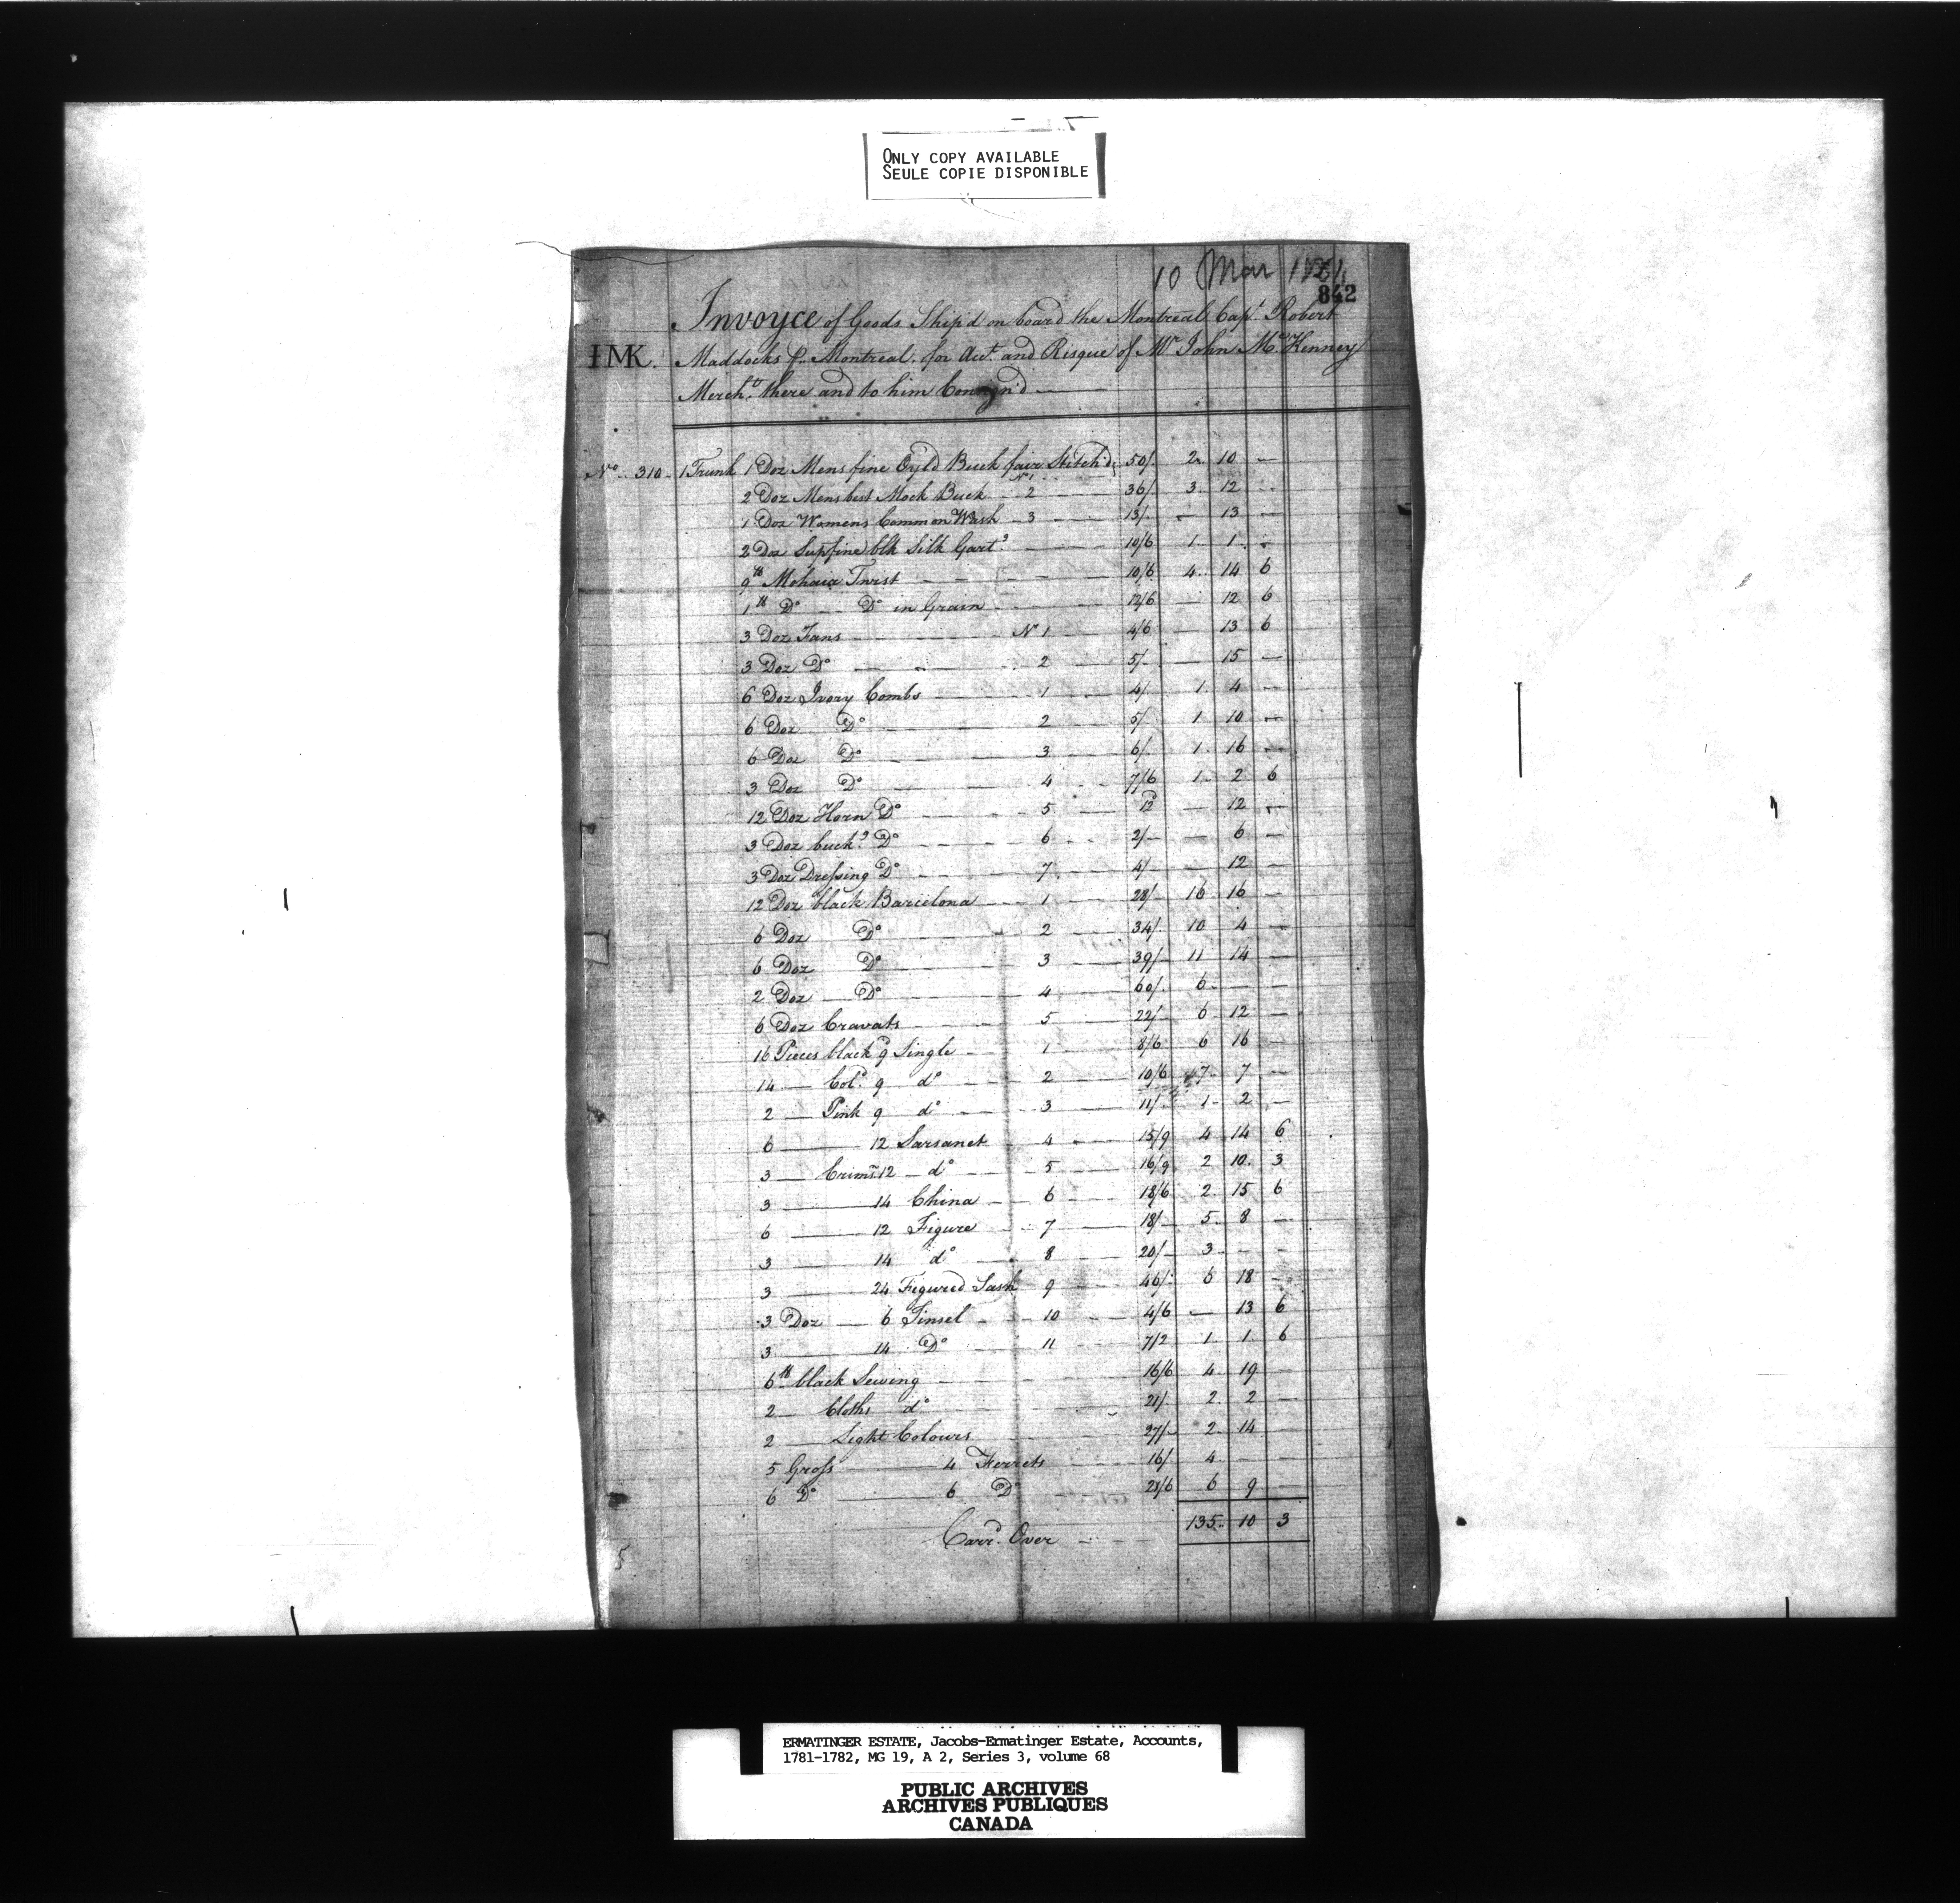 ONLY COPY AVAILABLE
SEULE COPIE DISPONIBLE
10 Mar
842
Invoyce of Goods Ship'd on board the Montreal Capt. Robert
IMK. Maddocks p. Montreal. for Acct. and Risque of Mr. John McKenney
Mercht. there and to him Consign'd
No. 310. 1 Trunk 1 Doz Mens fine Oyl'd Buck fair Stitch'd No. 1 50/. 2. 10 —
2 Doz Mens best Mock Buck 2 36/. 3. 12 —
1 Doz Womens Common Wash 3 13/. — 13 —
2 Doz Supfine blk Silk Gart.s 10/6 1. 1. —
9 lb Mohair Twist 10/6 4. 14 6
1 lb Do. Do. in Grain 12/6 — 12 6
3 Doz Fans No 1 4/6 — 13 6
3 Doz Do. 2 5/- — 15 —
6 Doz Ivory Combs 1 4/. 1. 4 —
6 Doz Do. 2 5/. 1 10 —
6 Doz Do. 3 6/. 1. 16 —
3 Doz Do. 4 7/6 1. 2 6
12 Doz Horn Do. 5 12d — 12 —
3 Doz buck.s Do. 6 2/- — 6 —
3 Doz Dressing Do. 7 4/- — 12 —
12 Doz black Barcelona 1 28/- 16 16 —
6 Doz Do. 2 34/. 10 4 —
6 Doz Do. 3 39/- 11 14 —
2 Doz Do. 4 60/. 6 — —
6 Doz Cravats 5 22/- 6 12 —
16 Pieces black 9d Single 1 8/6 6 16 —
14 Col.d 9 do. 2 10/6 7. 7 —
2 Pink 9 do. 3 11/. 1. 2 —
6 12 Sarsanet 4 15/9 4 14 6
3 Crimsn. 12 do. 5 16/9 2 10. 3
3 14 China 6 18/6 2. 15 6
6 12 Figure 7 18/- 5. 8 —
3 14 do. 8 20/- 3 — —
3 24 Figured Sash 9 46/. 6 18 —
3 Doz 6 Tinsel 10 4/6 — 13 6
3 14 Do. 11 7/2 1. 1. 6
6 lb black Sewing 16/6 4. 19 —
2 Cloths do. 21/. 2. 2 —
2 Light Colours 27/- 2. 14 —
5 Gross 4 Ferrets 16/ 4 — —
6 Do. 6 Do. 21/6 6 9 —
Carr.d Over 135. 10 3
ERMATINGER ESTATE, Jacobs-Ermatinger Estate, Accounts,
1781-1782, MG 19, A 2, Series 3, volume 68
PUBLIC ARCHIVES
ARCHIVES PUBLIQUES
CANADA